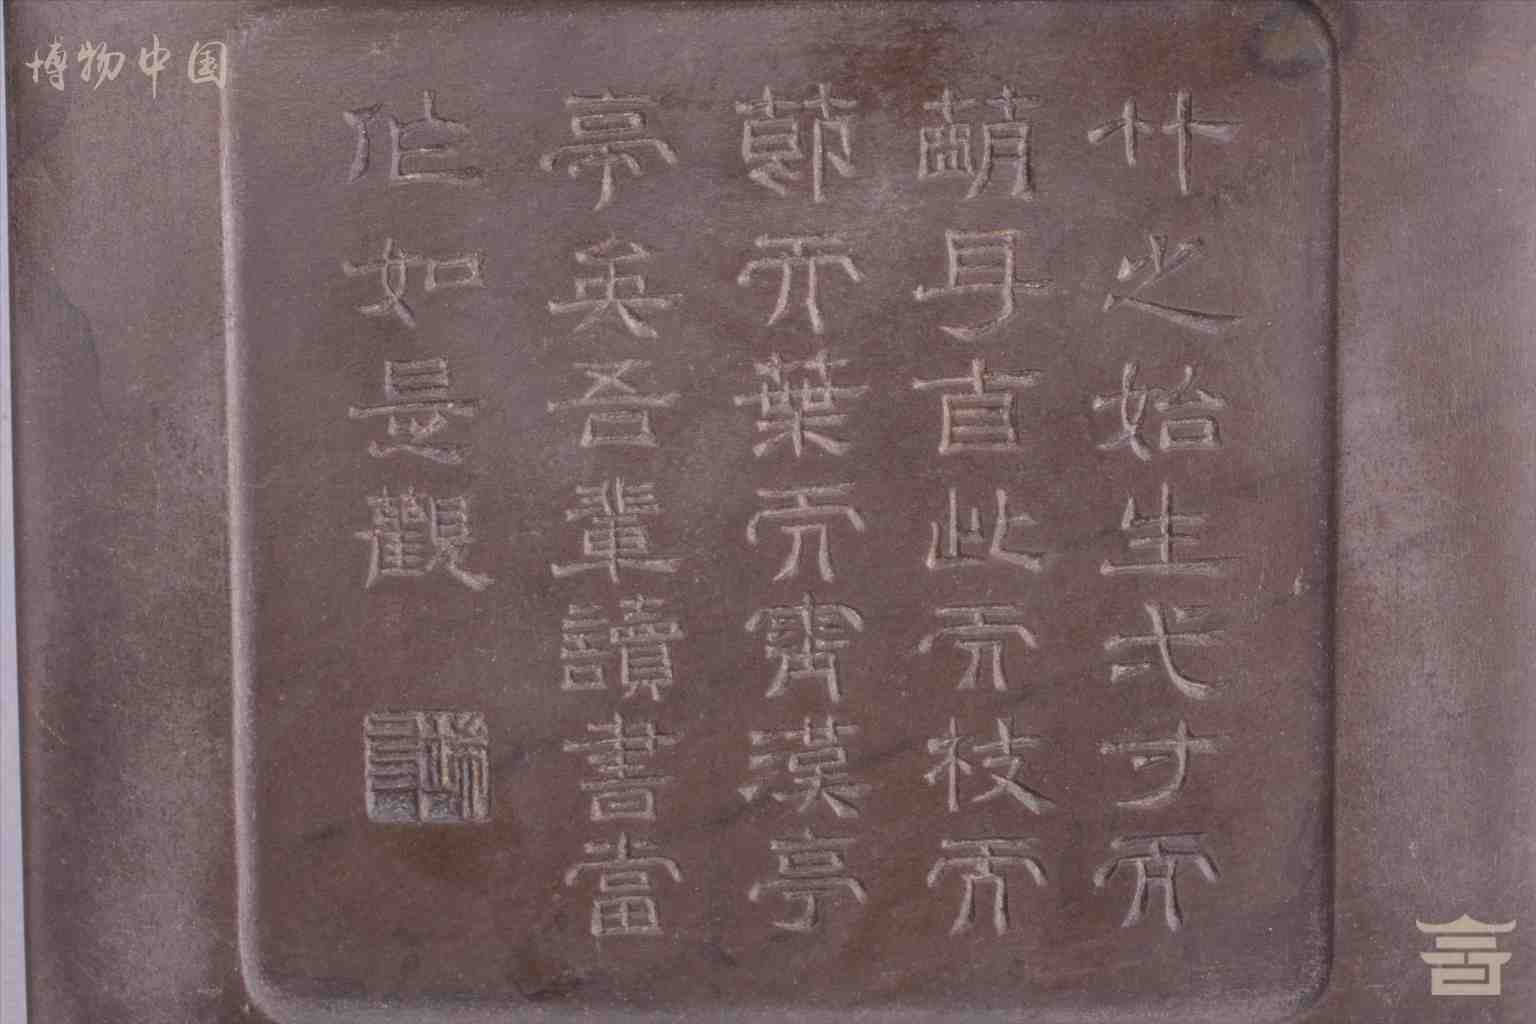 博物中国
竹之始生弌寸而
萌耳直此而枝而
節而葉而霄漢亭
亭矣吾輩讀書當
作如是觀